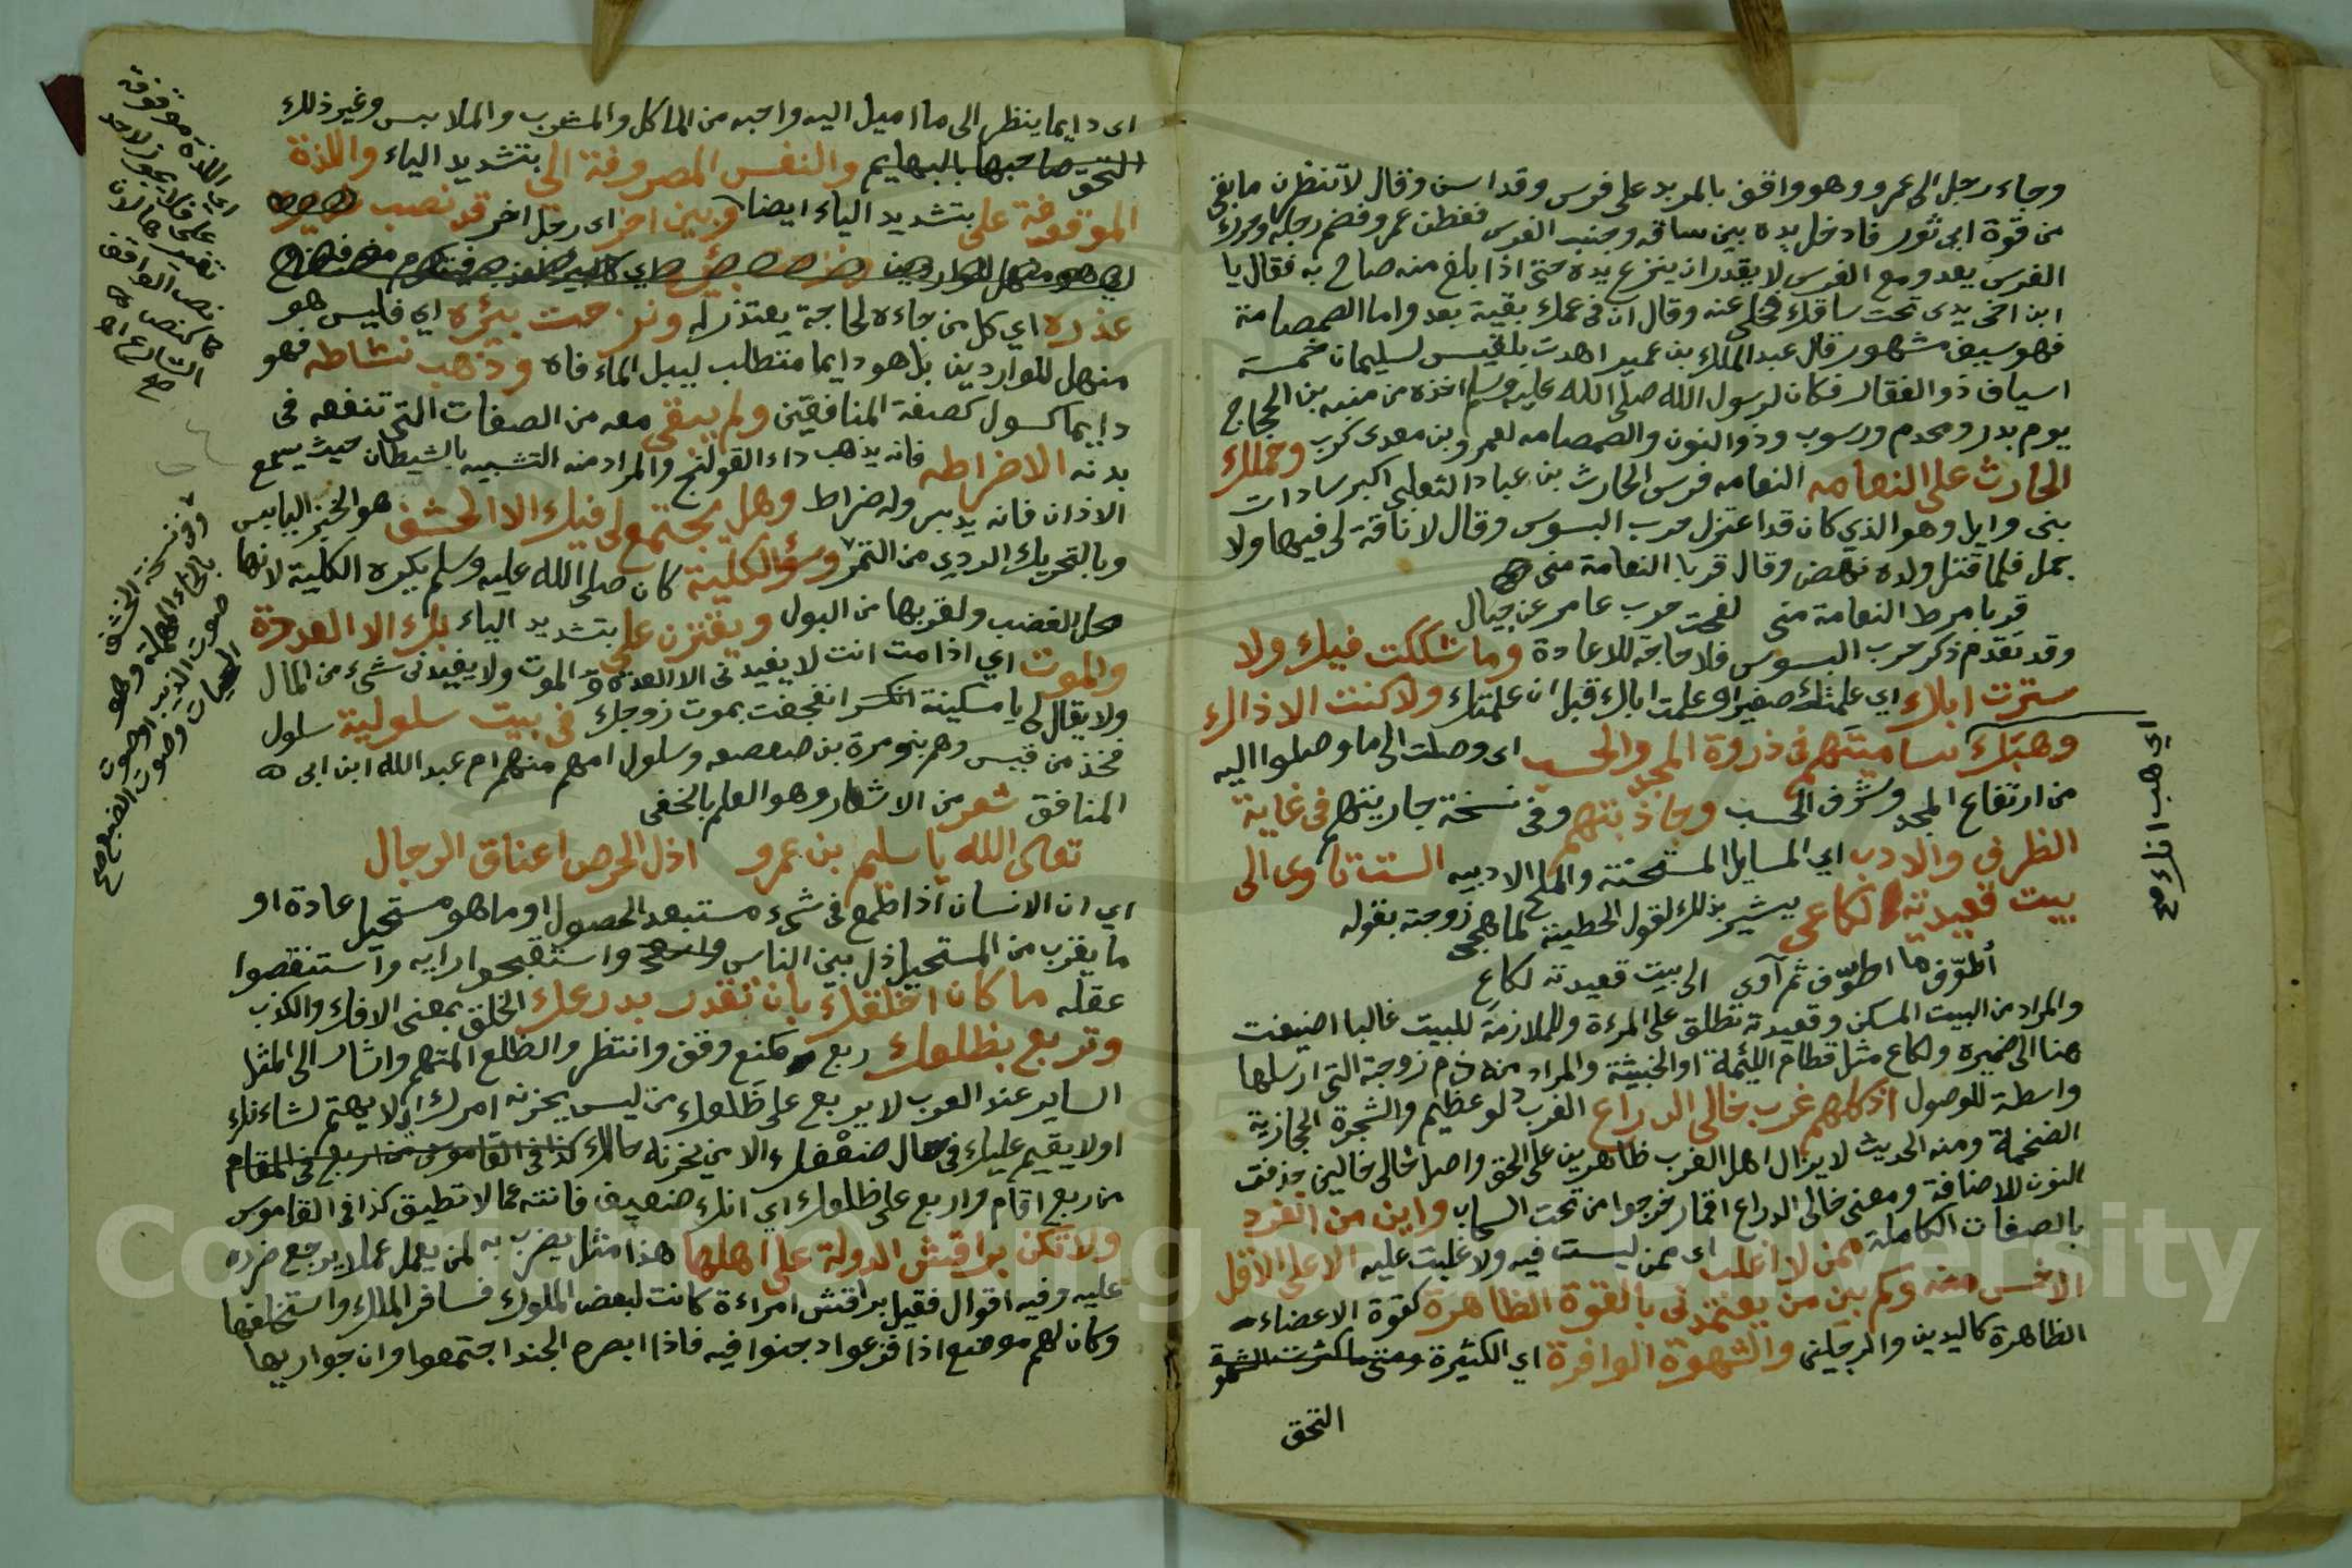 وجاء رجل الى عمرو وهو واقف بالمربد على فرس وقد اسن وقال لانظرن ما بقي
من قوة ابي ثور فادخل يده بين ساقه وجنب الفرس ففطن عمرو فضم رجله وحرك
الفرس يعدو مع الفرس لا يقدر ان ينزع يده حتى اذا بلغ منه صاح به فقال يا
ابن اخي يدي تحت ساقك فخلى عنه وقال ان في عمك بقية بعد واما الصمصامة
فهو سيف مشهور قال عبد الملك بن عمير اهدت بلقيس لسليمان خمسة
اسياف ذو الفقار فكان لرسول الله صلى الله عليه وسلم اخذه من منبه بن الحجاج
يوم بدر ومخدم ورسوب وذو النون والصمصامه لعمرو بن معدى كرب وحملك
الحارث على النعامه النعامه فرس الحارث بن عباد الثعلبي اكبر سادات
بنى وايل وهو الذي كان قد اعتزل حرب البسوس وقال لا ناقة لى فيها ولا
جمل فلما قتل ولده نهض وقال قربا النعامة منى
قربا مربط النعامة منى لقحت حرب عامر عن حيال
وقد تقدم ذكر حرب البسوس فلا حاجة للاعادة وما شككت فيك ولا
سترت اباك اي علمتك صغيرا وعلمت اباك قبل ان علمتك ولا كنت الا ذاك
وهبك ساميتهم فى ذروة المجد والحسب اى وصلت الى ما وصلوا اليه
من ارتفاع المجد وشرف الحسب وجاذبتهم وفى نسخة جاريتهم فى غاية
الظرف والادب اي المسايل المستحسنة والملح الادبيه الست تاوى الى
بيت قعيدته لكاعى يشير بذلك لقول الحطيئة لما هجى زوجته بقوله
أطوّف ما اطوّف ثم آوي الى بيت قعيدته لكاع
والمراد من البيت المسكن وقعيدته تطلق على المرءة والملازمة للبيت غالبا اضيفت
هنا الى ضميره ولكاع مثل قطام اللئيمة او الخبيثة والمراد منه ذم زوجته التى ارسلها
واسطة للوصول اذ كلهم غرب خالى الدراع الغرب دلو عظيم والشجرة الحجازية
الضخمة ومنه الحديث لا يزال اهل الغرب ظاهرين على الحق واصل خالى خالين حذفت
النون للاضافة ومعنى خالى الدراع اقمار خرجوا من تحت السحاب واين من انفرد
بالصفات الكاملة ممن لا اغلب اى ممن ليست فيه ولا غلبت عليه الا على الاقل
الاخس منه وكم بين من يعتمدنى بالقوة الظاهرة كقوة الاعضاء
الظاهرة كاليدين والرجلين والشهوة الوافرة اي الكثيرة ومتى ما كثرت الشهو
التحق
اي هب انك صح
اى دايما ينظر الى ما اميل اليه واحبه من الماكل والمشرب والملابس وغير ذلك
التحق صاحبها بالبهايم والنفس المصروفة الى بتشديد الياء واللذة
الموقوفة على بتشديد الياء ايضا وبين اخر اى رجل اخر قد نصب
عذره اي كل من جاءه لحاجة يعتذر له ونزحت بيره اي فليس هو
منهل للواردين بل هو دايما متطلب ليبل الماء فاه وذهب نشاطه فهو
دايما كسول كصفة المنافقين ولم يبقى معه من الصفات التى تنفعه فى
بدنه الا ضراطه فانه يذهب داء القولنج والمراد منه التشبيه بالشيطان حيث يسمع
الاذان فانه يدبر وله ضراط وهل يجتمع لى فيك الا الحشف هو الخبز اليابس
وبالتحريك الردي من التمر وسؤ الكلية كان صلى الله عليه وسلم يكره الكلية لانها
محل الغضب ولقربها من البول ويقترن على بتشديد الياء بك الا الغدة
والموت اي اذا مت انت لا يفيدنى الا الغده والموت ولا يفيدنى شيء من المال
ولا يقال لى يا مسكينة انكسر انفجعت بموت زوجك فى بيت سلولية سلول
فخذ من قيس وهم بنو مرة بن صعصعه وسلول امهم منهم ام عبد الله ابن ابى
المنافق شعر من الاشعار وهو العلم بالخفى
تعالى الله يا سلم بن عمرو اذل الحرص اعناق الرجال
اي ان الانسان اذا طمع فى شيء مستبعد الحصول او ما هو مستحيل عادة او
ما يقرب من المستحيل ذل بين الناس واستقبحوا رايه واستنقصوا
عقله ما كان اخلقك بان تقدر بدرعك الخلق بمعنى الافك والكذب
وتربع بظلعك ربع كمنع وقف وانتظر والظلع المتهم واشار الى المثل
الساير عند العرب لا يربع على ظلعك من ليس يحزنه امرك اى لا يهتم لشاءنك
اولا يقيم عليك فى حال ضعفك الا من يحزنه حالك كذا فى القاموس من اربع فى المقام
من ربع اقام واربع على ظلعك اي انك ضعيف فانته عما لا تطيق كذا فى القاموس
ولا تكن براقش الدولة على اهلها هذا مثل يضرب به لمن يعمل عملا يرجع ضرره
عليه وفيه اقوال فقيل براقش امراءة كانت لبعض الملوك فسافر الملك واستخلفها
وكان لهم موضع اذا فزعوا دخنوا فيه فاذا ابصره الجند اجتمعوا وان جواريها
اي اللذة موقوفة
على فلا يجوز لاحد
نص الواقف
كنص
الشارع اه
صح
وفى نسخة الخشف
بالخاء المعجمة وهو
صوت الذيب او صوت
الحيات وصوت الضبع صح
Copyright © King Saud University